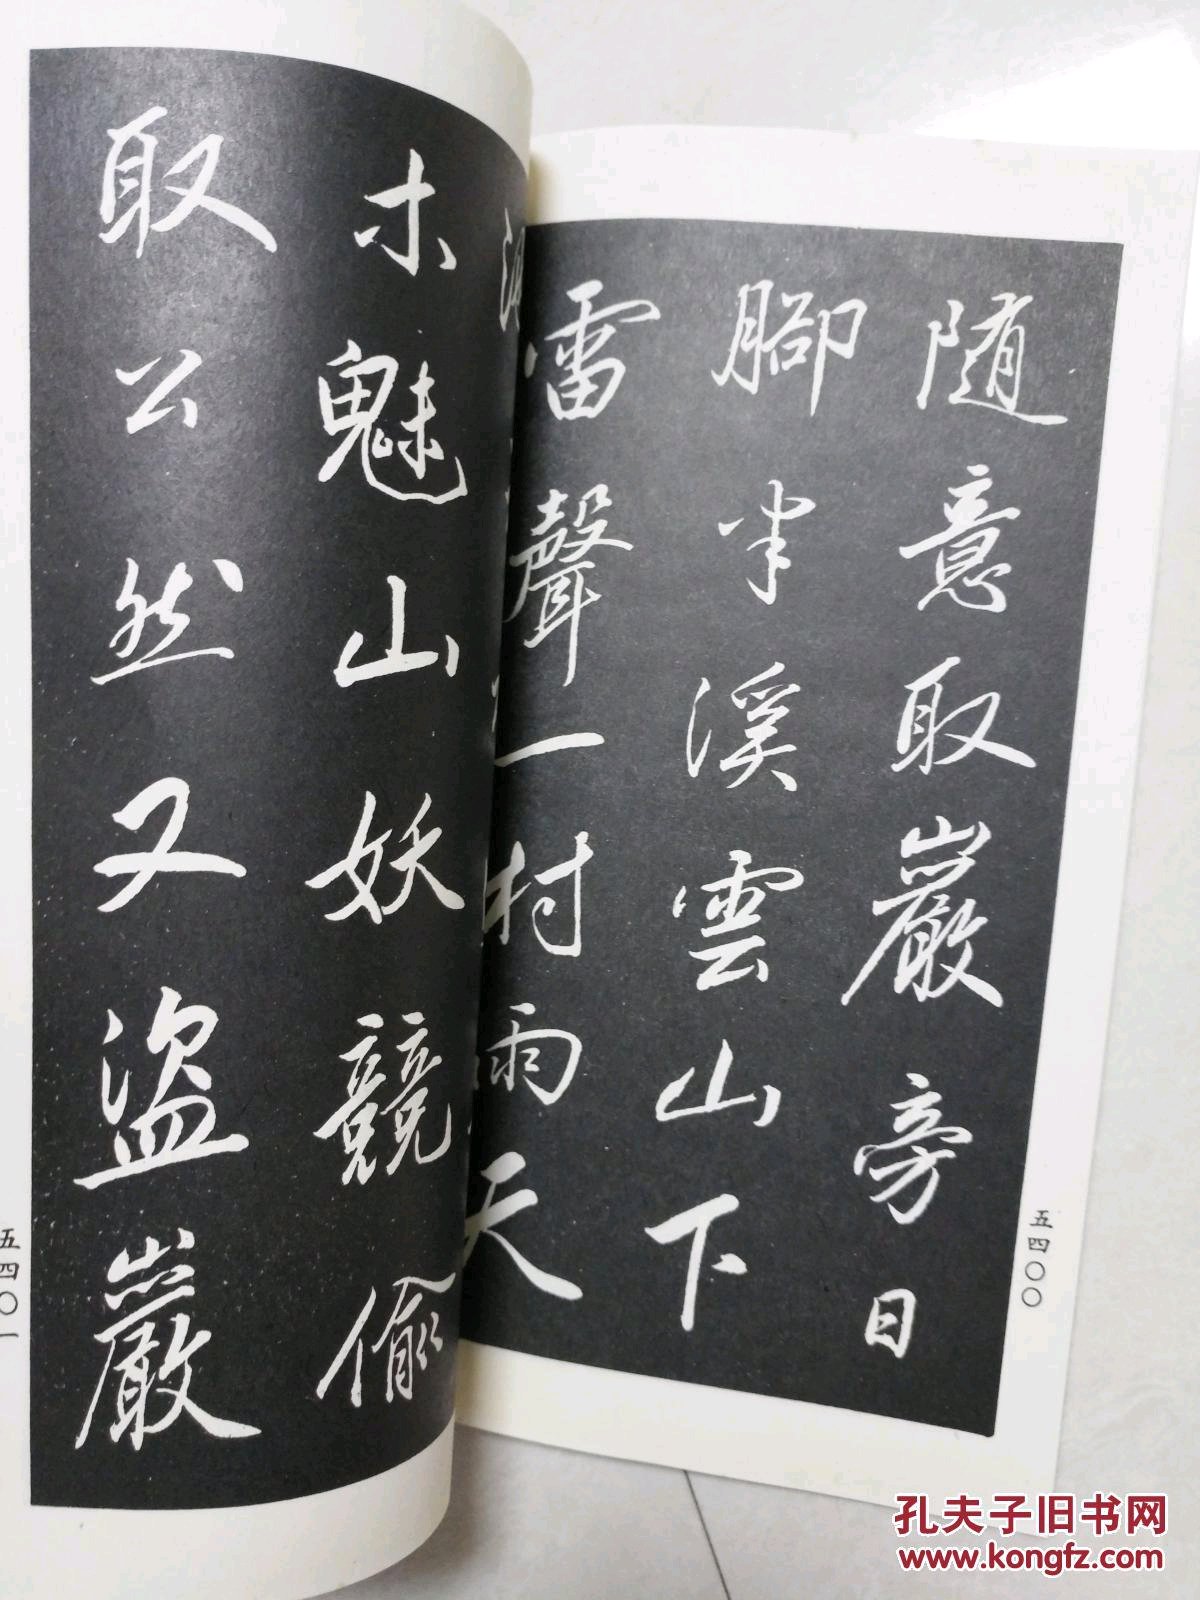 随意取巖旁日
腳半溪雲山下
雷聲一村雨天
五四〇〇
木魅山妖競偷
取公然又盜巖
五四〇一
孔夫子旧书网
www.kongfz.com